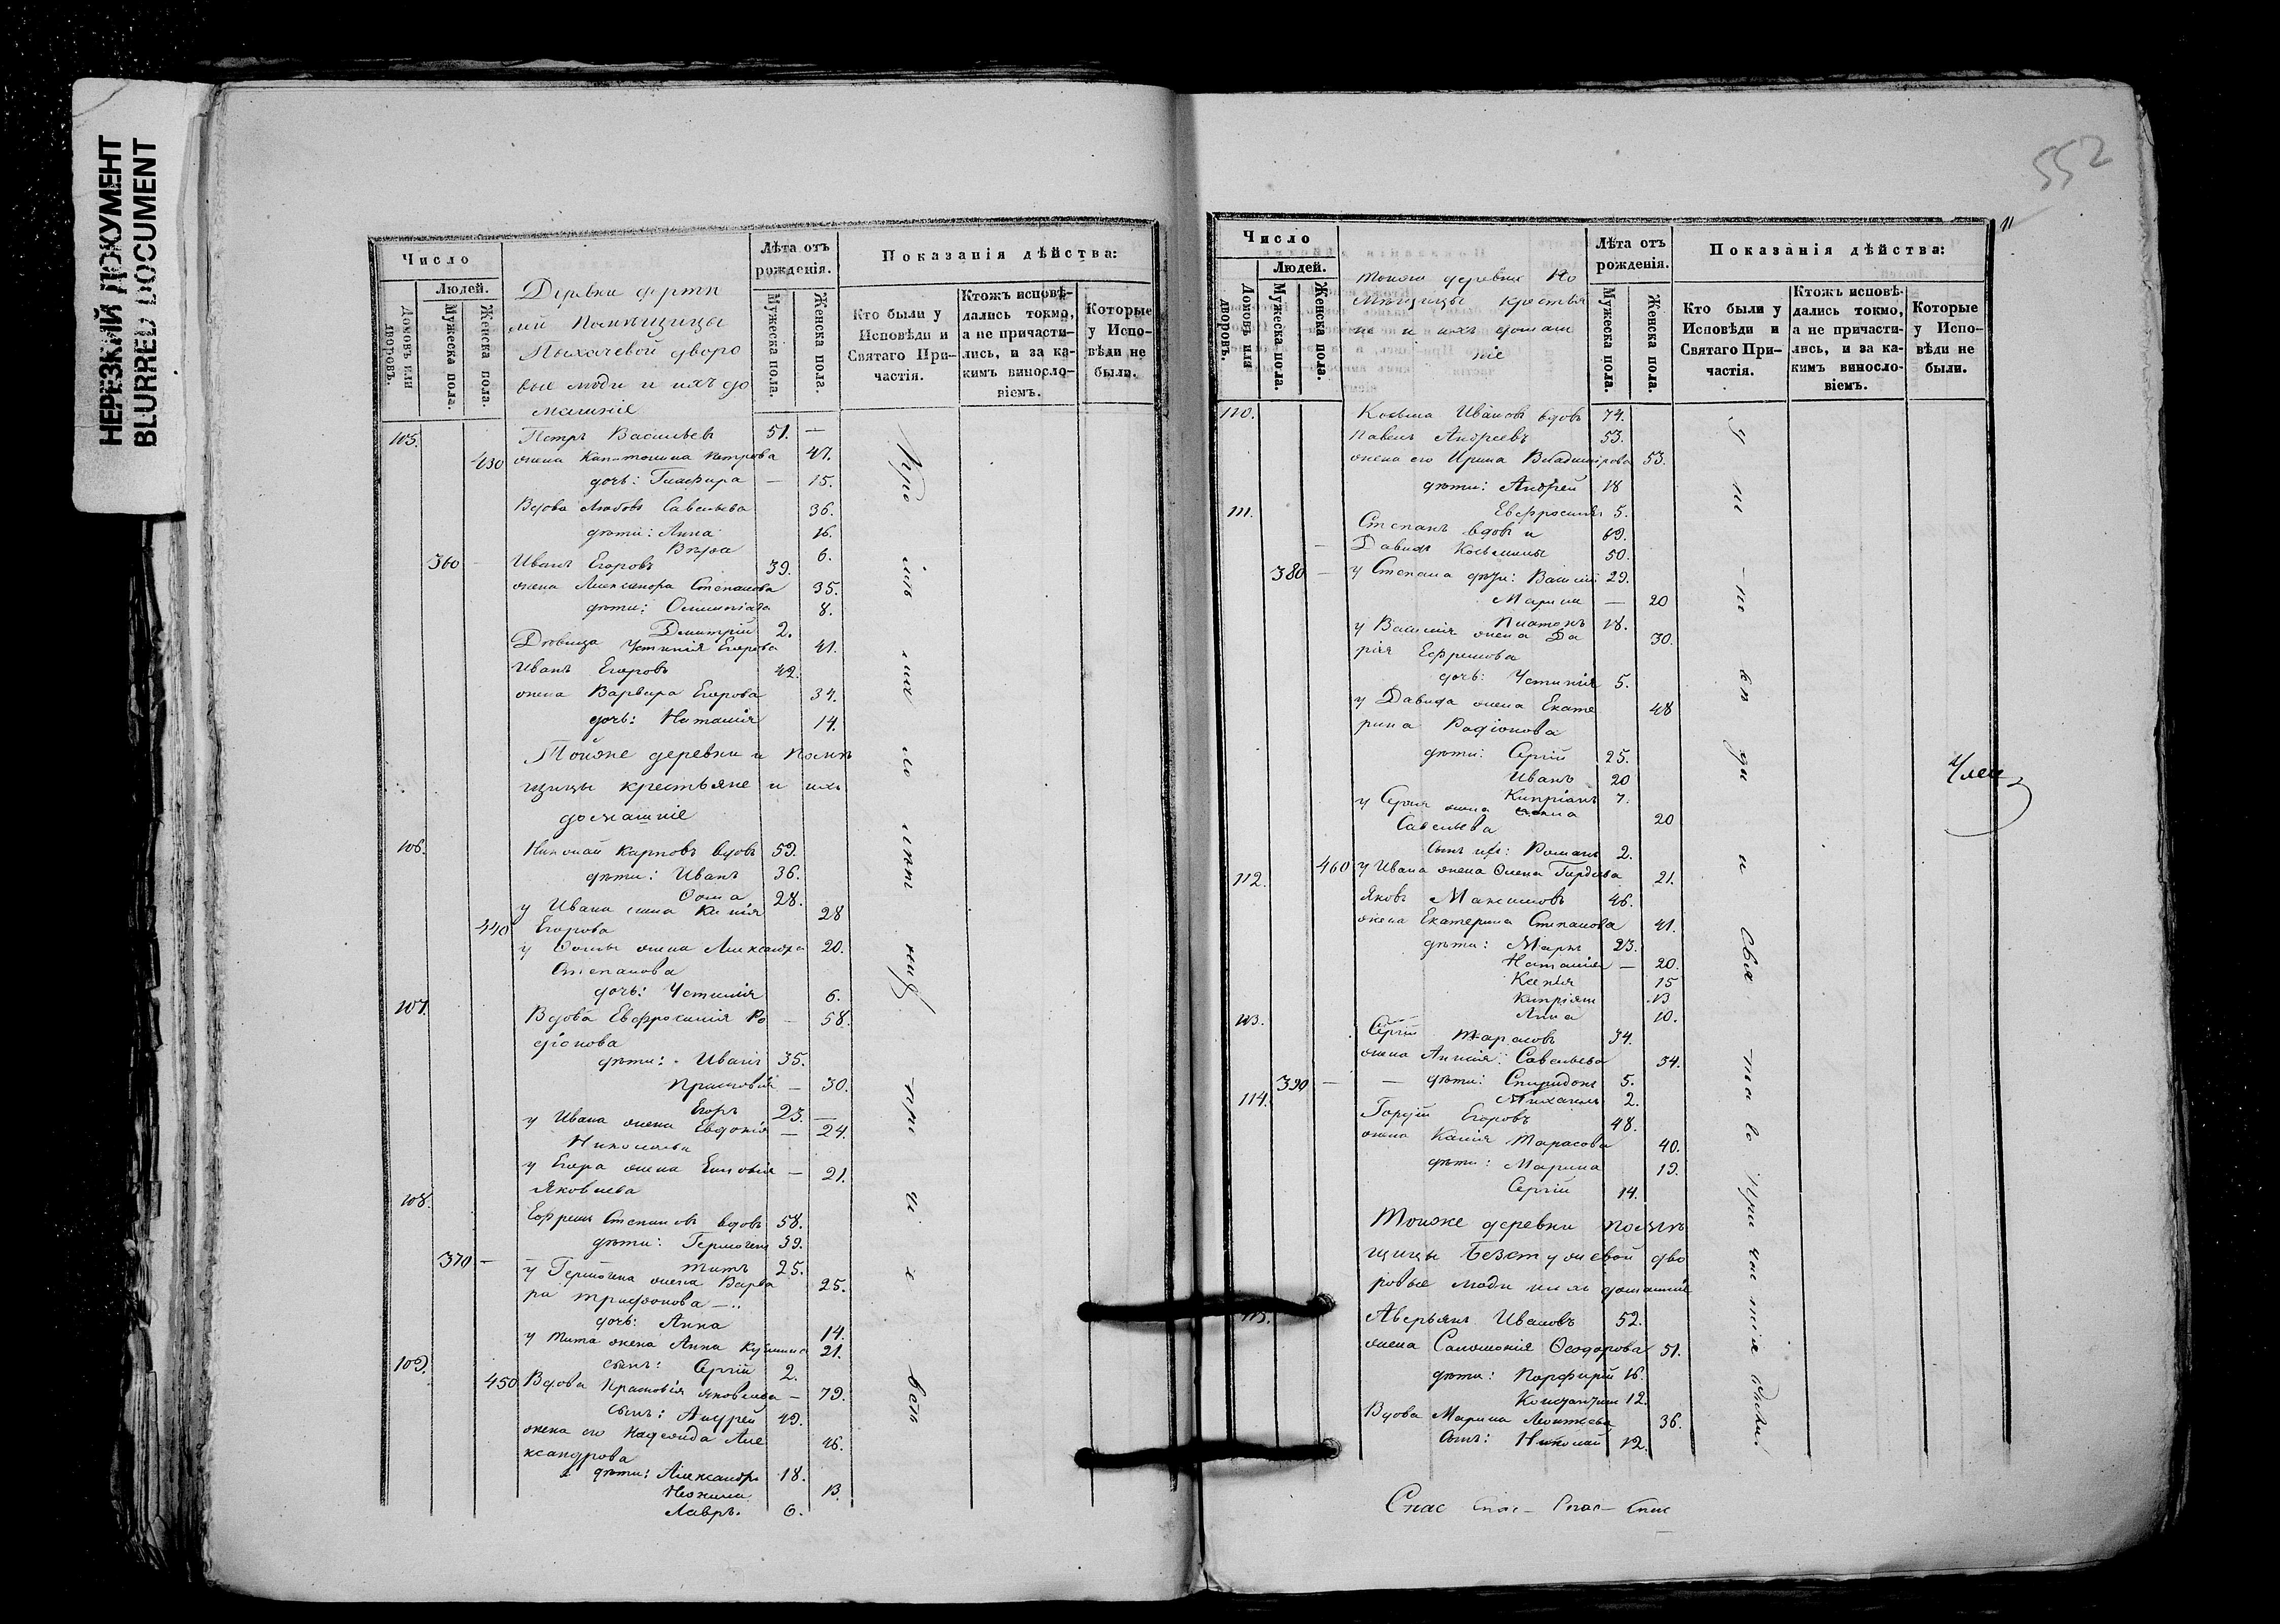 НЕРЕЗКИЙ ДОКУМЕНТ
BLURRED DOCUMENT
Число
Людей.
Домовъ или дворовъ.
Мужеска пола.
Женска пола.
Лѣта отъ рожденія.
Мужеска пола.
Женска пола.
Показанія дѣйства:
Кто были у Исповѣди и Святаго Причастія.
Ктожъ исповѣдались токмо, а не причастились, и за какимъ винословіемъ.
Которые у Исповѣди не были.
Деревни
Помѣщицы
дворо
вые люди и ихъ до
машніе
105. Петръ Васильевъ 51. —
430 жена Капитолина Петрова 47.
дочь: Глафира — 15.
Вдова Любовь Савельева 36.
дѣти: Анна 16.
Вѣра 6.
360 — Иванъ Егоровъ 39.
жена Александра Степанова 35.
дѣти: Олимпіада 8.
Дмитрій 2.
Дѣвица Устинія Егорова 41.
Иванъ Егоровъ 42.
жена Варвара Егорова 34.
дочь: Наталія 14.
Тойже деревни и помѣ
щицы крестьяне и ихъ
домашніе
106. Николай Карповъ вдовъ 59.
дѣти: Иванъ 36.
Ѳома 28.
у Ивана жена 28
440 Егорова
у Ѳомы жена Александра 20.
Степанова
дочь: Устинія 6.
107. Вдова Евфросинія Ро — 58.
діонова
дѣти: Иванъ 35.
Прасковія — 30.
Егоръ 23. —
у Ивана жена Евдокія — 24.
Николаева
у Егора жена — 21.
Яковлева
108. Ефремъ Степановъ вдовъ 58.
дѣти: Гермогенъ 39.
370 — Титъ 25.
у Гермогена жена Варва 25.
ра Трифонова
дочь: Анна 14.
у Тита жена Анна 21.
сынъ: Сергій 2.
109. 450 Вдова Прасковія Яковлева — 79.
сынъ: Андрей 49.
жена его Надежда Але 46.
ксандрова
дѣти: Александръ 18.
13.
Лавръ. 6.
552
11
Число
Людей.
Домовъ или дворовъ.
Мужеска пола.
Женска пола.
Лѣта отъ рожденія.
Мужеска пола.
Женска пола.
Показанія дѣйства:
Кто были у Исповѣди и Святаго Причастія.
Ктожъ исповѣдались токмо, а не причастились, и за какимъ винословіемъ.
Которые у Исповѣди не были.
Тойже деревни По
мѣщицы крестья
не и ихъ домаш
ніе
110. Косьма Ивановъ вдовъ 74.
Павелъ Андреевъ 53.
жена его Ирина Владимірова 53.
дѣти: Андрей 18
111. Евфросинія 5.
Степанъ вдовъ и 69.
— Давидъ Косьмины 50.
380 — у Степана дѣти: Василій 29.
Марина — 20
Платонъ 18.
у Василія жена Да 30.
рія Ефремова
дочь: Устинія 5.
у Давида жена Екате 48
рина Родіонова
дѣти: Сергій 25.
Иванъ 20
Кипріанъ 7.
у Сергія жена 20
Савельева
сынъ ихъ: Романъ 2.
460 у Ивана жена Олена 21.
112. Яковъ Максимовъ 46.
жена Екатерина Степанова 41.
дѣти: Маркъ 23.
Наталія — 20.
Ксенія 15
13
Анна 10.
113. Сергій Тарасовъ 34.
жена Анисія Савельева 34.
390 — — дѣти: Спиридонъ 5.
Михаилъ 2.
114. Гордѣй Егоровъ 48.
жена Тарасова 40.
дѣти: Марина 19.
Сергій 14.
Тойже деревни помѣ
щицы дво
ровые люди и ихъ домашніе
115. Аверьянъ Ивановъ 52.
жена Саломонія Ѳеодорова 51.
дѣти: Порфирій 16.
Константинъ 12.
Вдова Марина Леонтьева 36.
сынъ: Николай 12.
Член
Спас Спас — Спас — Спас